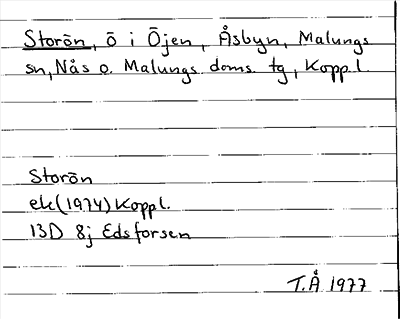 Storön, ö i Öjen, Åsbyn, Malungs
sn, Nås o. Malungs doms. tg, Koppl.
Storön
ek(1974)Koppl.
13D 8j Edsforsen
T.Å 1977